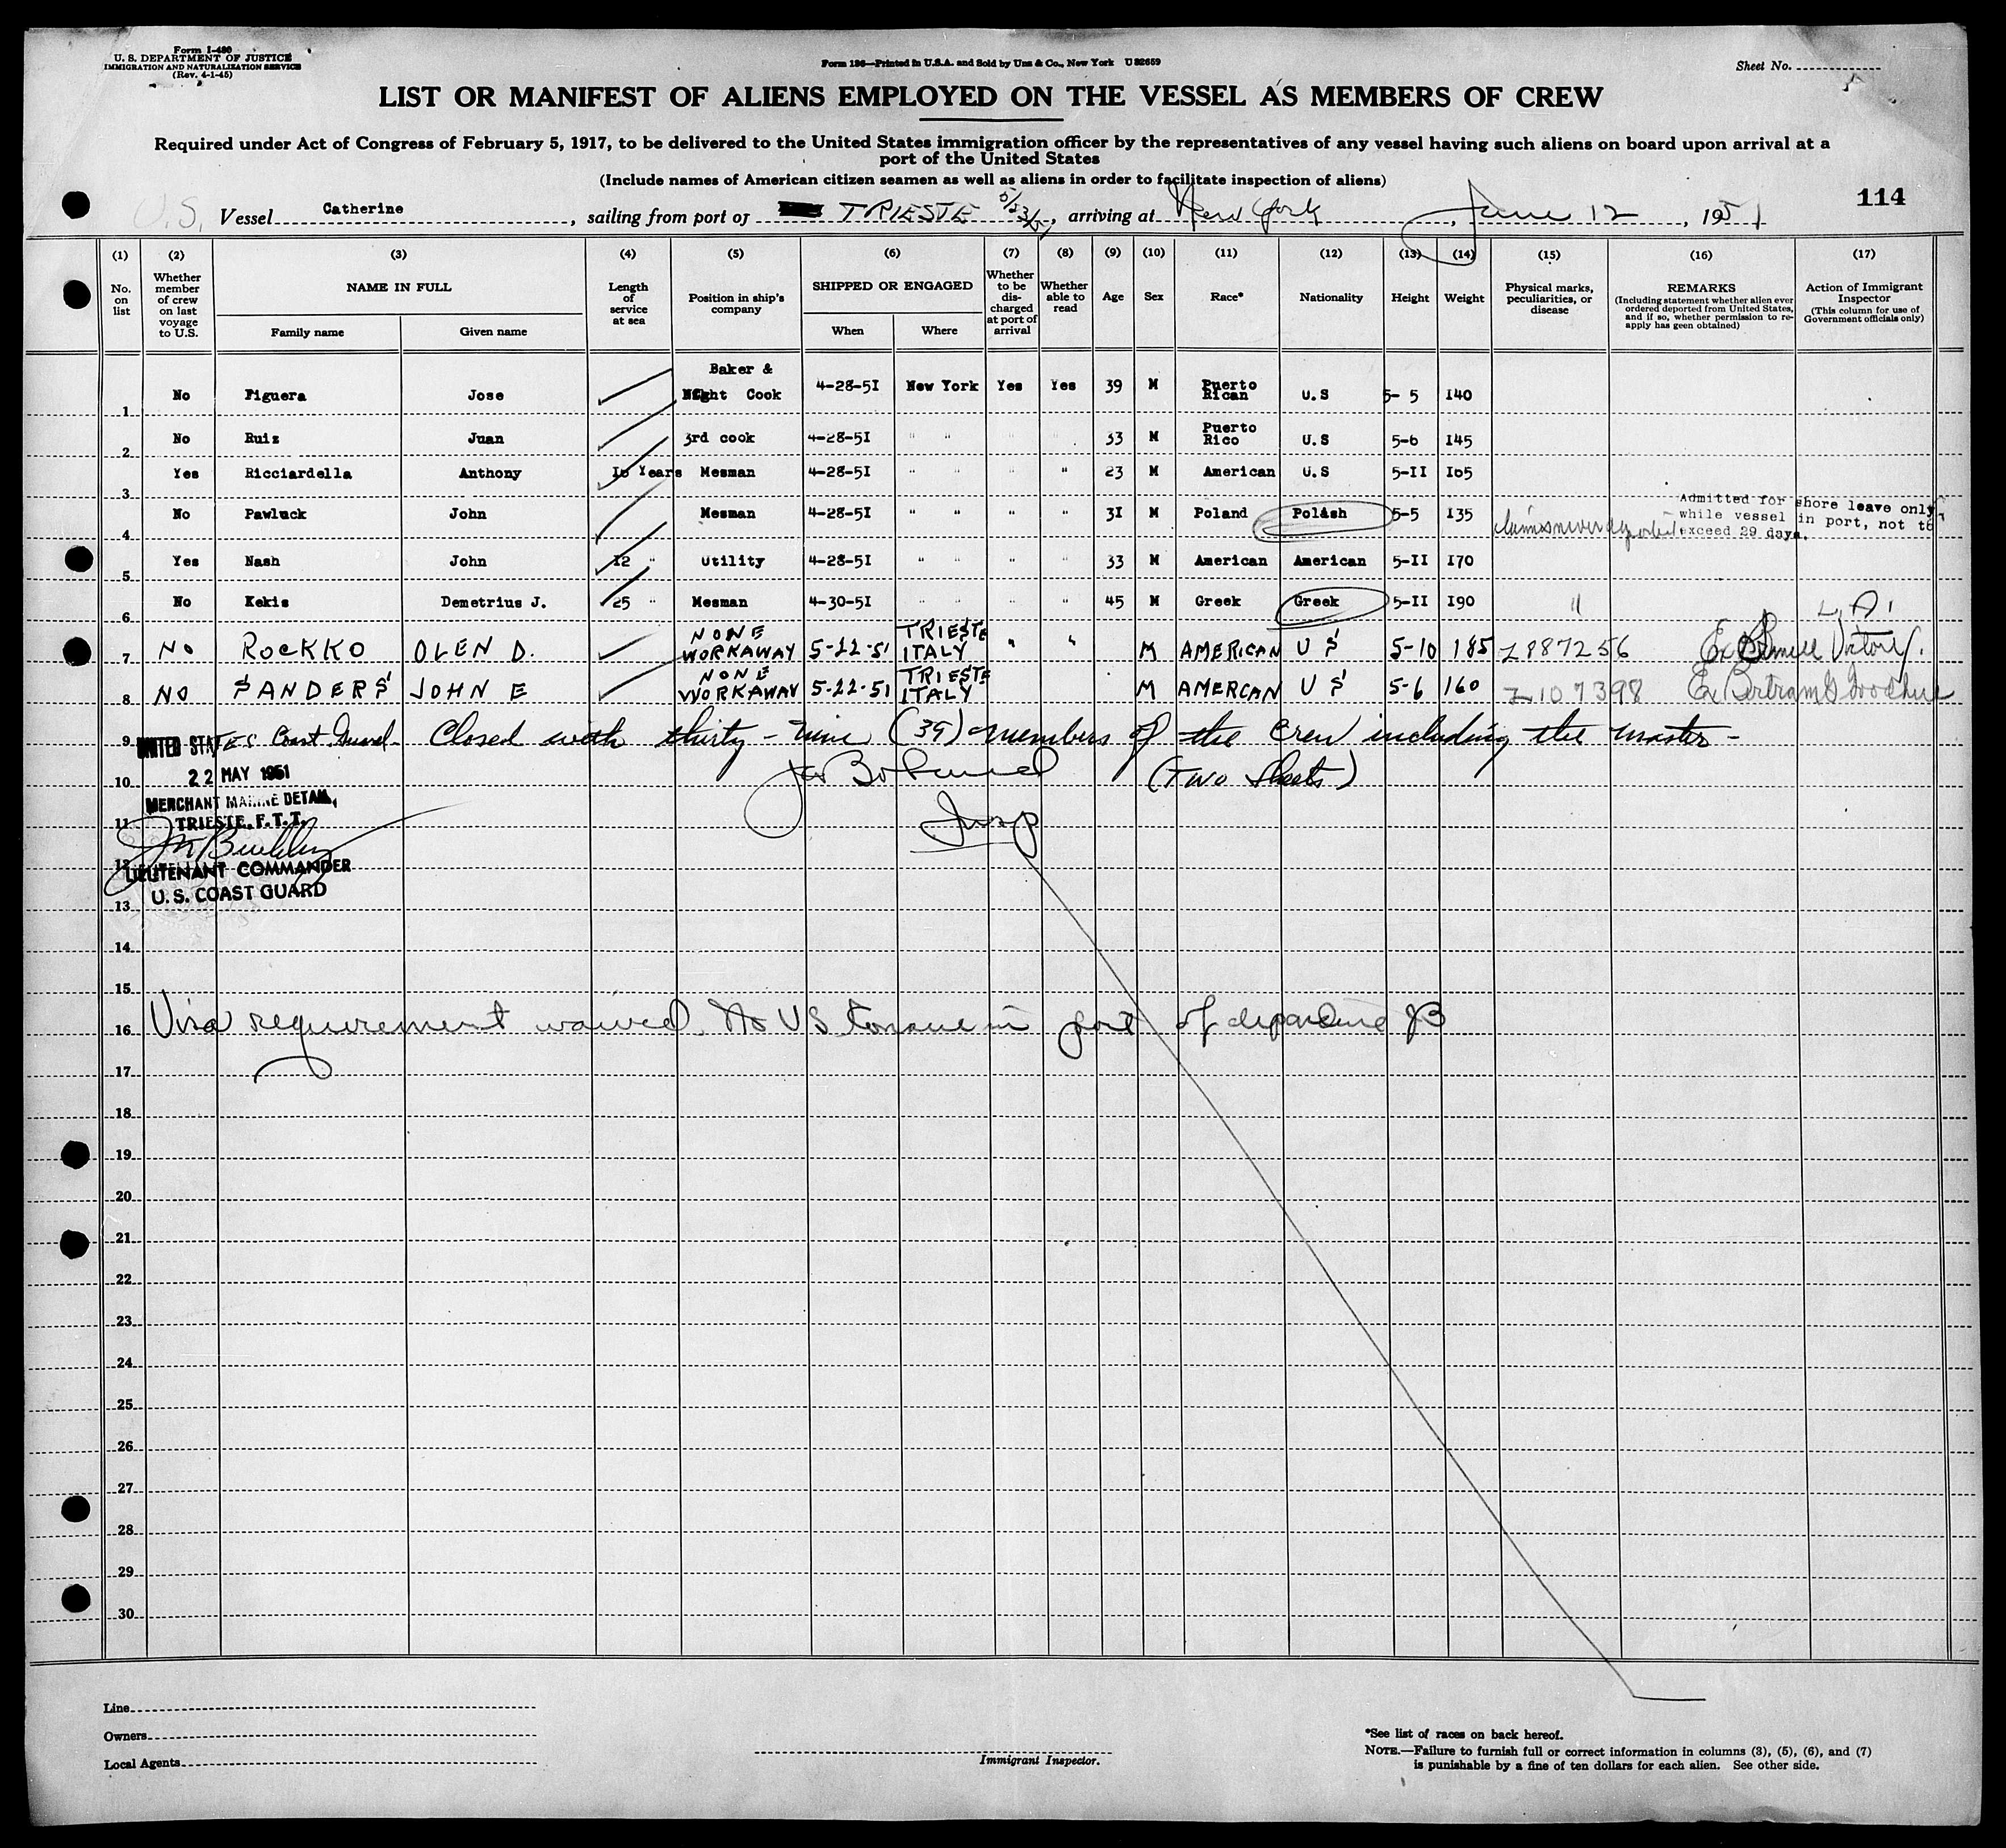 Form I-480
U. S. DEPARTMENT OF JUSTICE
IMMIGRATION AND NATURALIZATION SERVICE
(Rev. 4-1-45)
Form 186—Printed in U.S.A. and Sold by Unz & Co., New York U 82659
Sheet No.
LIST OR MANIFEST OF ALIENS EMPLOYED ON THE VESSEL AS MEMBERS OF CREW
Required under Act of Congress of February 5, 1917, to be delivered to the United States immigration officer by the representatives of any vessel having such aliens on board upon arrival at a
port of the United States
(Include names of American citizen seamen as well as aliens in order to facilitate inspection of aliens)
114
U.S. Vessel Catherine, sailing from port of TRIESTE 5/23/51, arriving at New York, June 12, 1951
(1) (2) (3) (4) (5) (6) (7) (8) (9) (10) (11) (12) (13) (14) (15) (16) (17)
No. on list
Whether member of crew on last voyage to U.S.
NAME IN FULL
Family name Given name
Length of service at sea
Position in ship's company
SHIPPED OR ENGAGED
When Where
Whether to be discharged at port of arrival
Whether able to read
Age
Sex
Race*
Nationality
Height
Weight
Physical marks, peculiarities, or disease
REMARKS
(Including statement whether alien ever ordered deported from United States, and if so, whether permission to reapply has geen obtained)
Action of Immigrant Inspector
(This column for use of Government officials only)
Baker &
1 No Figuera Jose Night Cook 4-28-5I New York Yes Yes 39 M Puerto Rican U.S 5- 5 I40
2 No Ruiz Juan 3rd cook 4-28-5I " " " " 33 M Puerto Rico U.S 5-6 I45
3 Yes Ricciardella Anthony Years Mesman 4-28-5I " " " " 23 M American U.S 5-II I65
4 No Pawluck John Mesman 4-28-5I " " " " 3I M Poland Polish 5-5 I35
Admitted for shore leave only
while vessel in port, not to
exceed 29 days.
5 Yes Nash John 12 " Utility 4-28-5I " " " " 33 M American American 5-II I70
6 No Kekis Demetrius J. 25 " Mesman 4-30-5I " " " " 45 M Greek Greek 5-II I90 "
7 No ROCKKO OLEN D. NONE WORKAWAY 5-22-51 TRIESTE ITALY " " M AMERICAN U S 5-10 185 Z887256 Ex Victory.
8 NO SANDERS JOHN E NONE WORKAWAY 5-22-51 TRIESTE ITALY M AMERCAN U S 5-6 160 Z107398 Ex Bertram Goodhue
9 UNITED STATES Coast Guard. Closed with thirty-nine (39) members of the crew including the master-
10 22 MAY 1951 (Two Sheets)
MERCHANT MARINE DETAIL
11 TRIESTE. F.T.T.
12 LIEUTENANT COMMANDER
U. S. COAST GUARD
13
14
15
16 Visa requirement waived. No US Consul in port of departure JB
17
18
19
20
21
22
23
24
25
26
27
28
29
30
Line
Owners
Local Agents
Immigrant Inspector.
*See list of races on back hereof.
NOTE.—Failure to furnish full or correct information in columns (3), (5), (6), and (7)
is punishable by a fine of ten dollars for each alien. See other side.